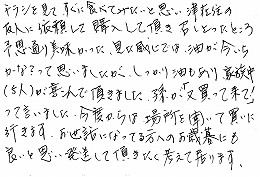 チラシを見て、すぐに食べてみたいと思い、津在住の
友人に依頼して購入して頂き召しとったところ
予想通り美味かった。見た感じでは、油が今いち
かな?って思いましたが、しっかり油もあり家族中
(5人)が喜んで頂きました。孫が「又買って来て!」
って言いました。今度からは場所を聞いて買いに
行きます。お世話になってる方へのお歳暮にも
良いと思い発送して頂きたく考えて居ります。